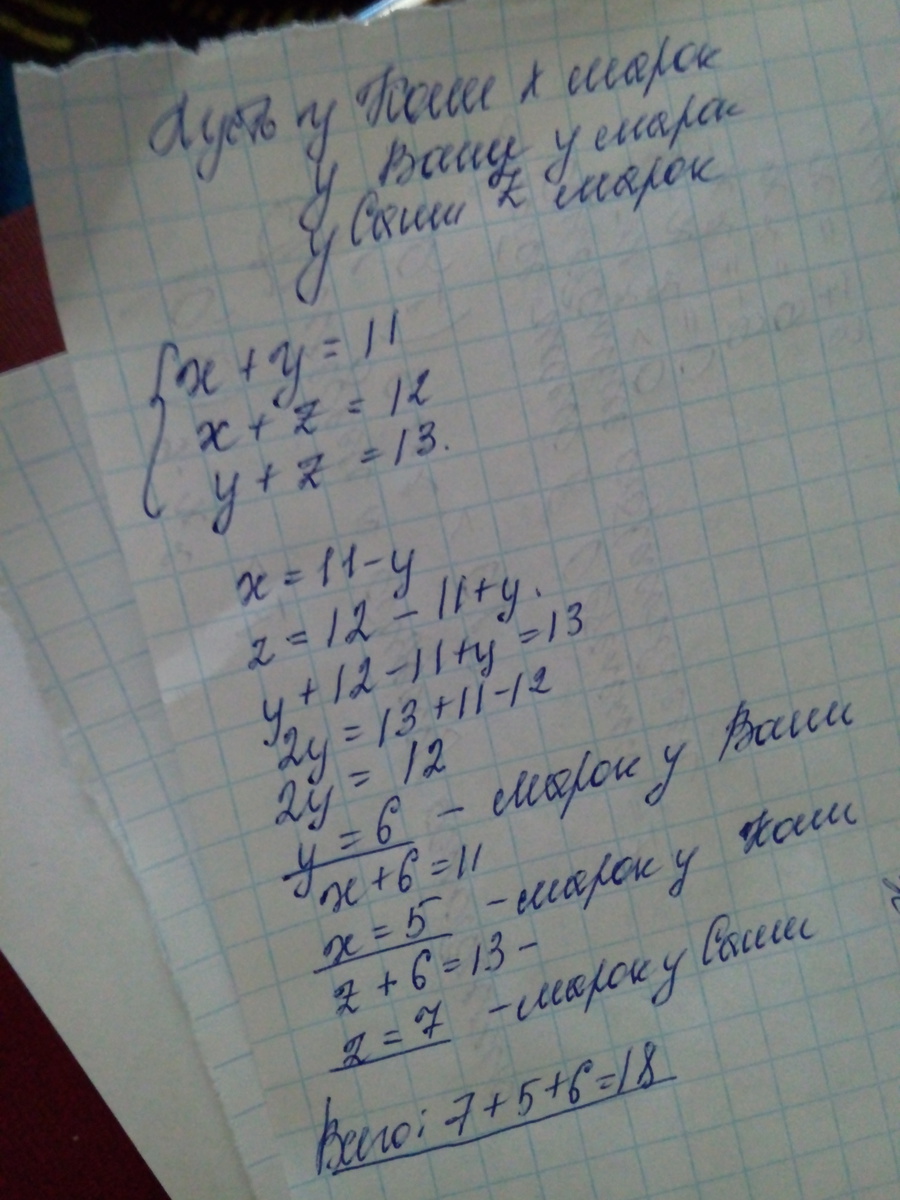 Пусть у Коли x марок
у Вани y марок
у Саши z марок
x + y = 11
x + z = 12
y + z = 13.
x = 11 - y
z = 12 - 11 + y.
y + 12 - 11 + y = 13
2y = 13 + 11 - 12
2y = 12
y = 6 - марок у Вани
x + 6 = 11
x = 5 - марок у Коли
z + 6 = 13 -
z = 7 - марок у Саши
Всего: 7 + 5 + 6 = 18